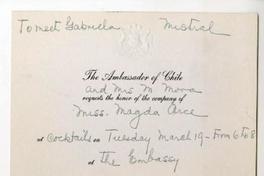 To meet Gabriela Mistral
The Ambassador of Chile
and Mrs M Mora
requests the honor of the company of
Miss. Magda Arce
at Cocktails on Tuesday March 19 - From 6 to 8
at The Embassy